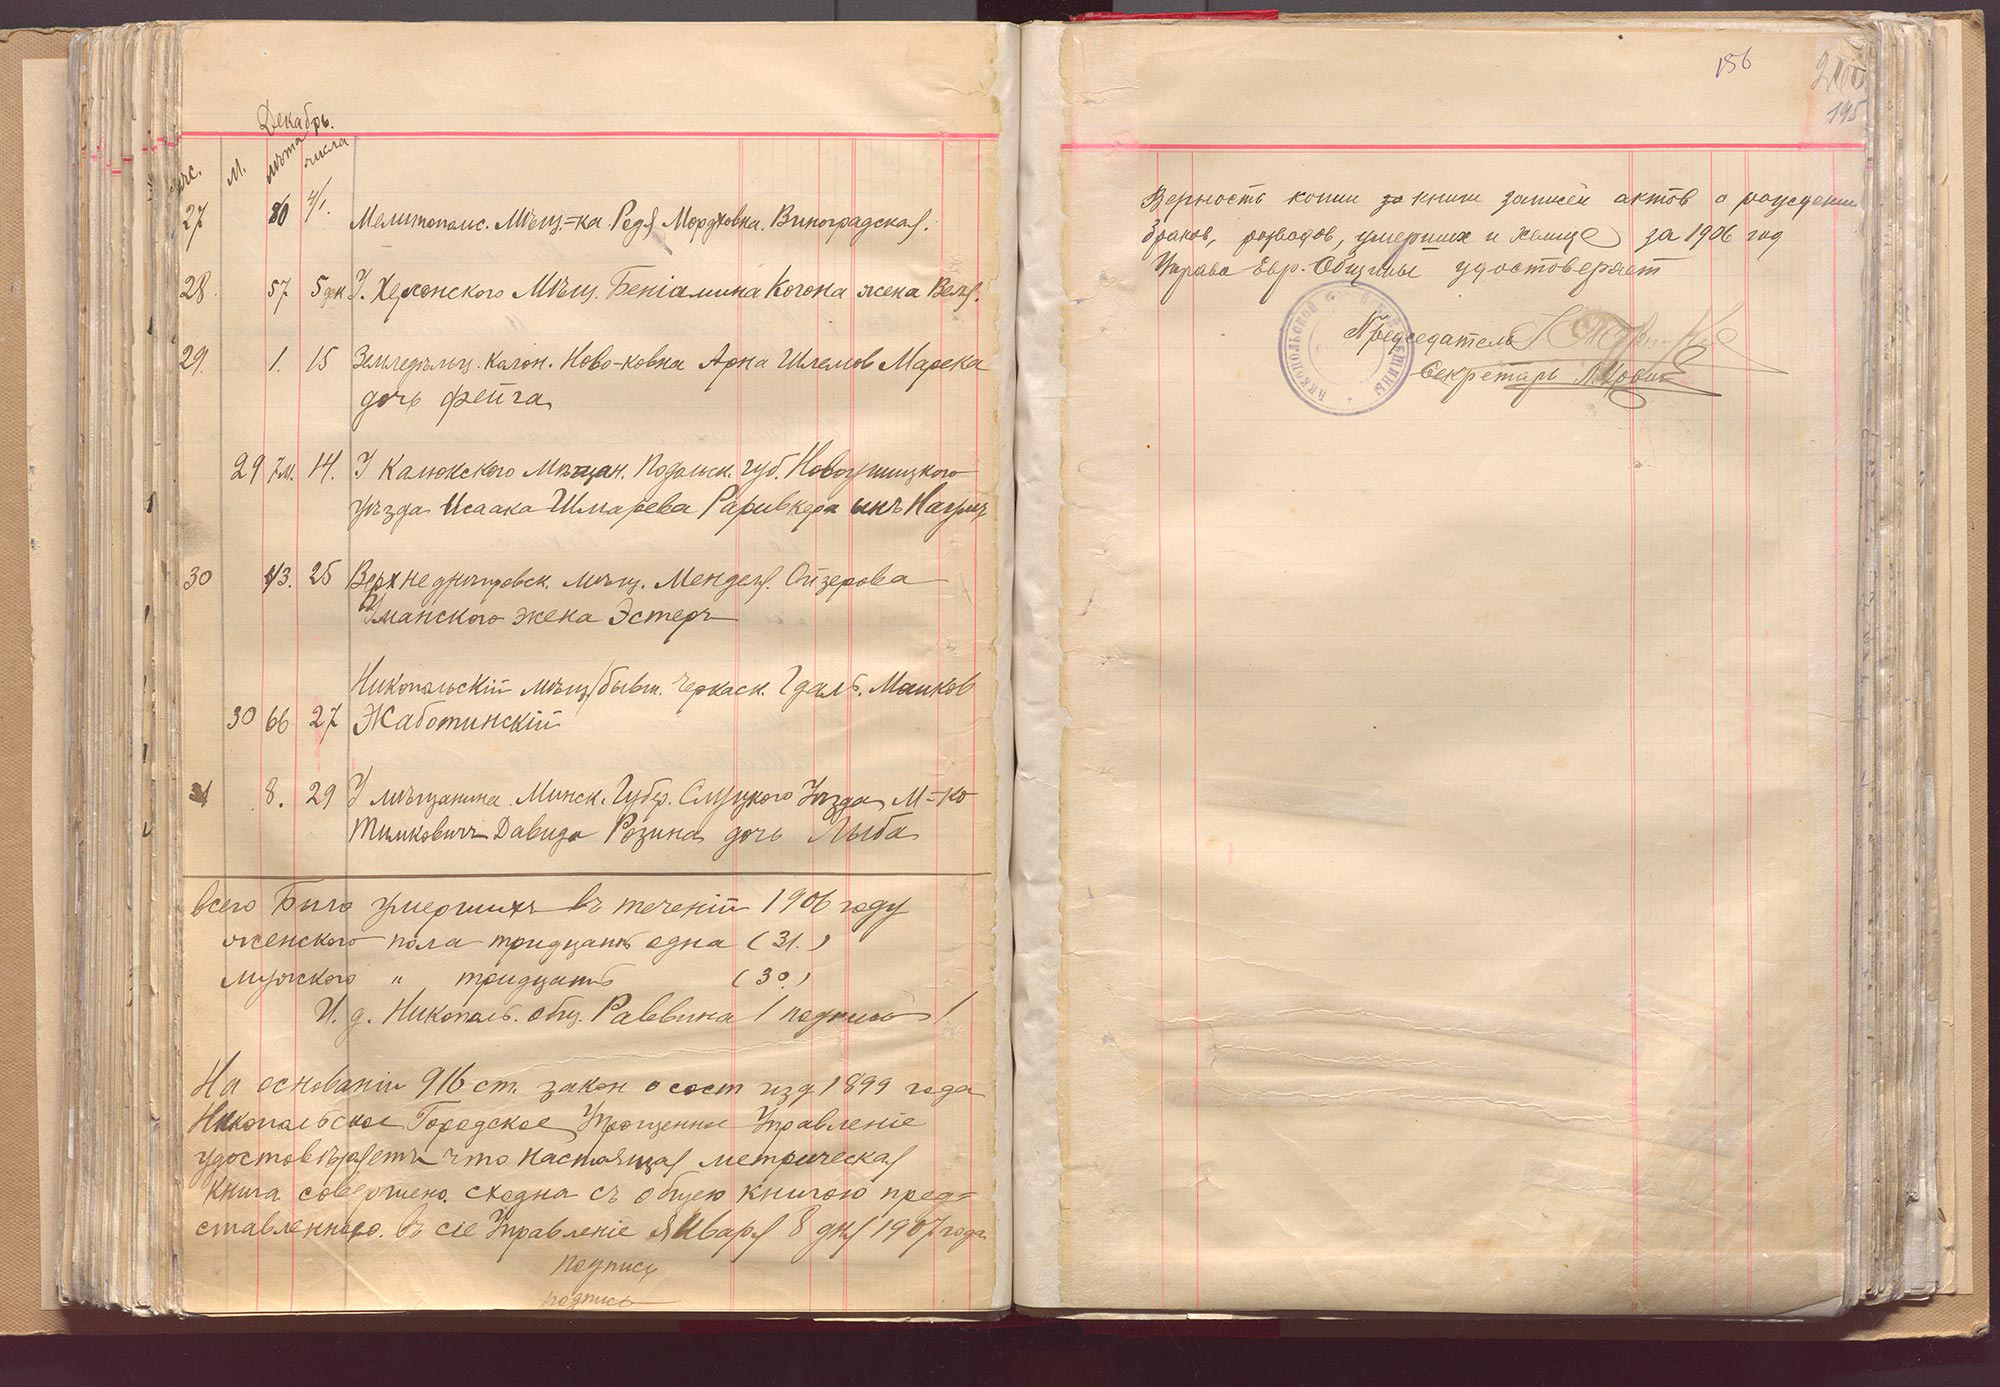 Декабрь.
М. лѣта числа
27 80 4/1. Мелитопольс. Мѣщ=ка Редя Мордковна Виноградская.
28 57 5 дн У. Херсонского Мѣщ. Беніамина Когона жена Веля.
29. 1. 15 Земледѣльц. колон. Ново-ковна Арна Шлемов Марека
дочь Фейга
29 7 м. 14. У Калюкского Мѣщан. Подольск. губ. Новоушицкого
уѣзда Исаака Шмарева Раривкера сынъ
30 43. 25 Верхнеднѣпровск. мѣщ. Менделя Ойзерова
Уманского жена Эстеръ
Никопольскій мѣщ/бывш. Черкаск. Гдаль. Маиков
30 66 27 Жаботинскій
31 8. 29 У мѣщанина Минск. Губер. Слуцкого Уѣзда М=ко
Тимковичъ Давида Розина дочь Лыба
Всего было умершихъ въ теченіи 1906 году
женского пола тридцать одна (31.)
мужского " тридцать (30.)
И. д. Никополь. общ. Раввина / подпись /
На основаніи 916 ст. закон о сост изд 1899 года
Никопольское Городское Упрощенное Управленіе
удостовѣряетъ что настоящая метрическая
книга совершено сходна съ общею книгою пред=
ставленного въ сіе Управленіе Января 8 дня 1907 года
подпись
подпись
156
195
Верность копии книги записей актов о рождении
браков, розводов, умерших и за 1906 год
Управа Евр. Общины удостоверяет
Председатель
Секретарь
НИКОПОЛЬСКОЙ ЕВРЕЙСКОЙ ОБЩИНЫ